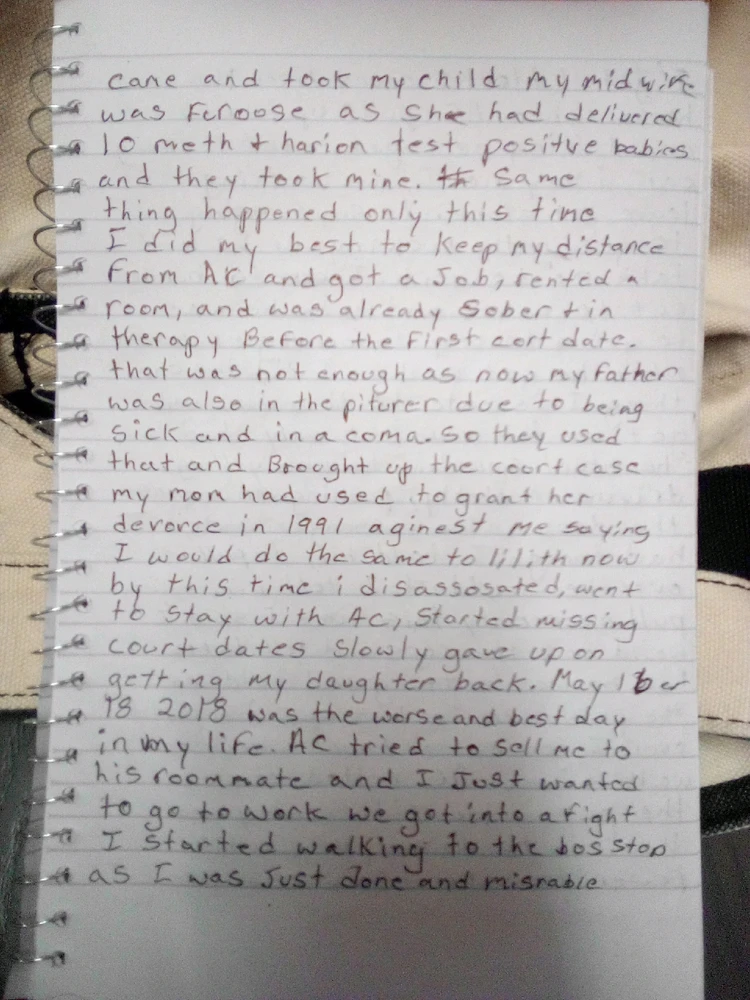 came and took my child my midwife
was Feroose as she had delivered
10 meth + harion test positve babies
and they took mine. Same
thing happened only this time
I did my best to keep my distance
from AC and got a Job, rented a
room, and was already Sober + in
therapy Before the first cort date.
that was not enough as now my father
was also in the piturer due to being
sick and in a coma. So they used
that and Brought up the court case
my mom had used to grant her
devorce in 1991 aginest me saying
I would do the same to lilith now
by this time i disassosated, went
to stay with AC, Started missing
court dates slowly gave up on
getting my daughter back. May
18 2018 was the worse and best day
in my life. AC tried to sell me to
his roommate and I Just wanted
to go to work we got into a fight
I started walking to the bos stop
as I was Just done and misrable